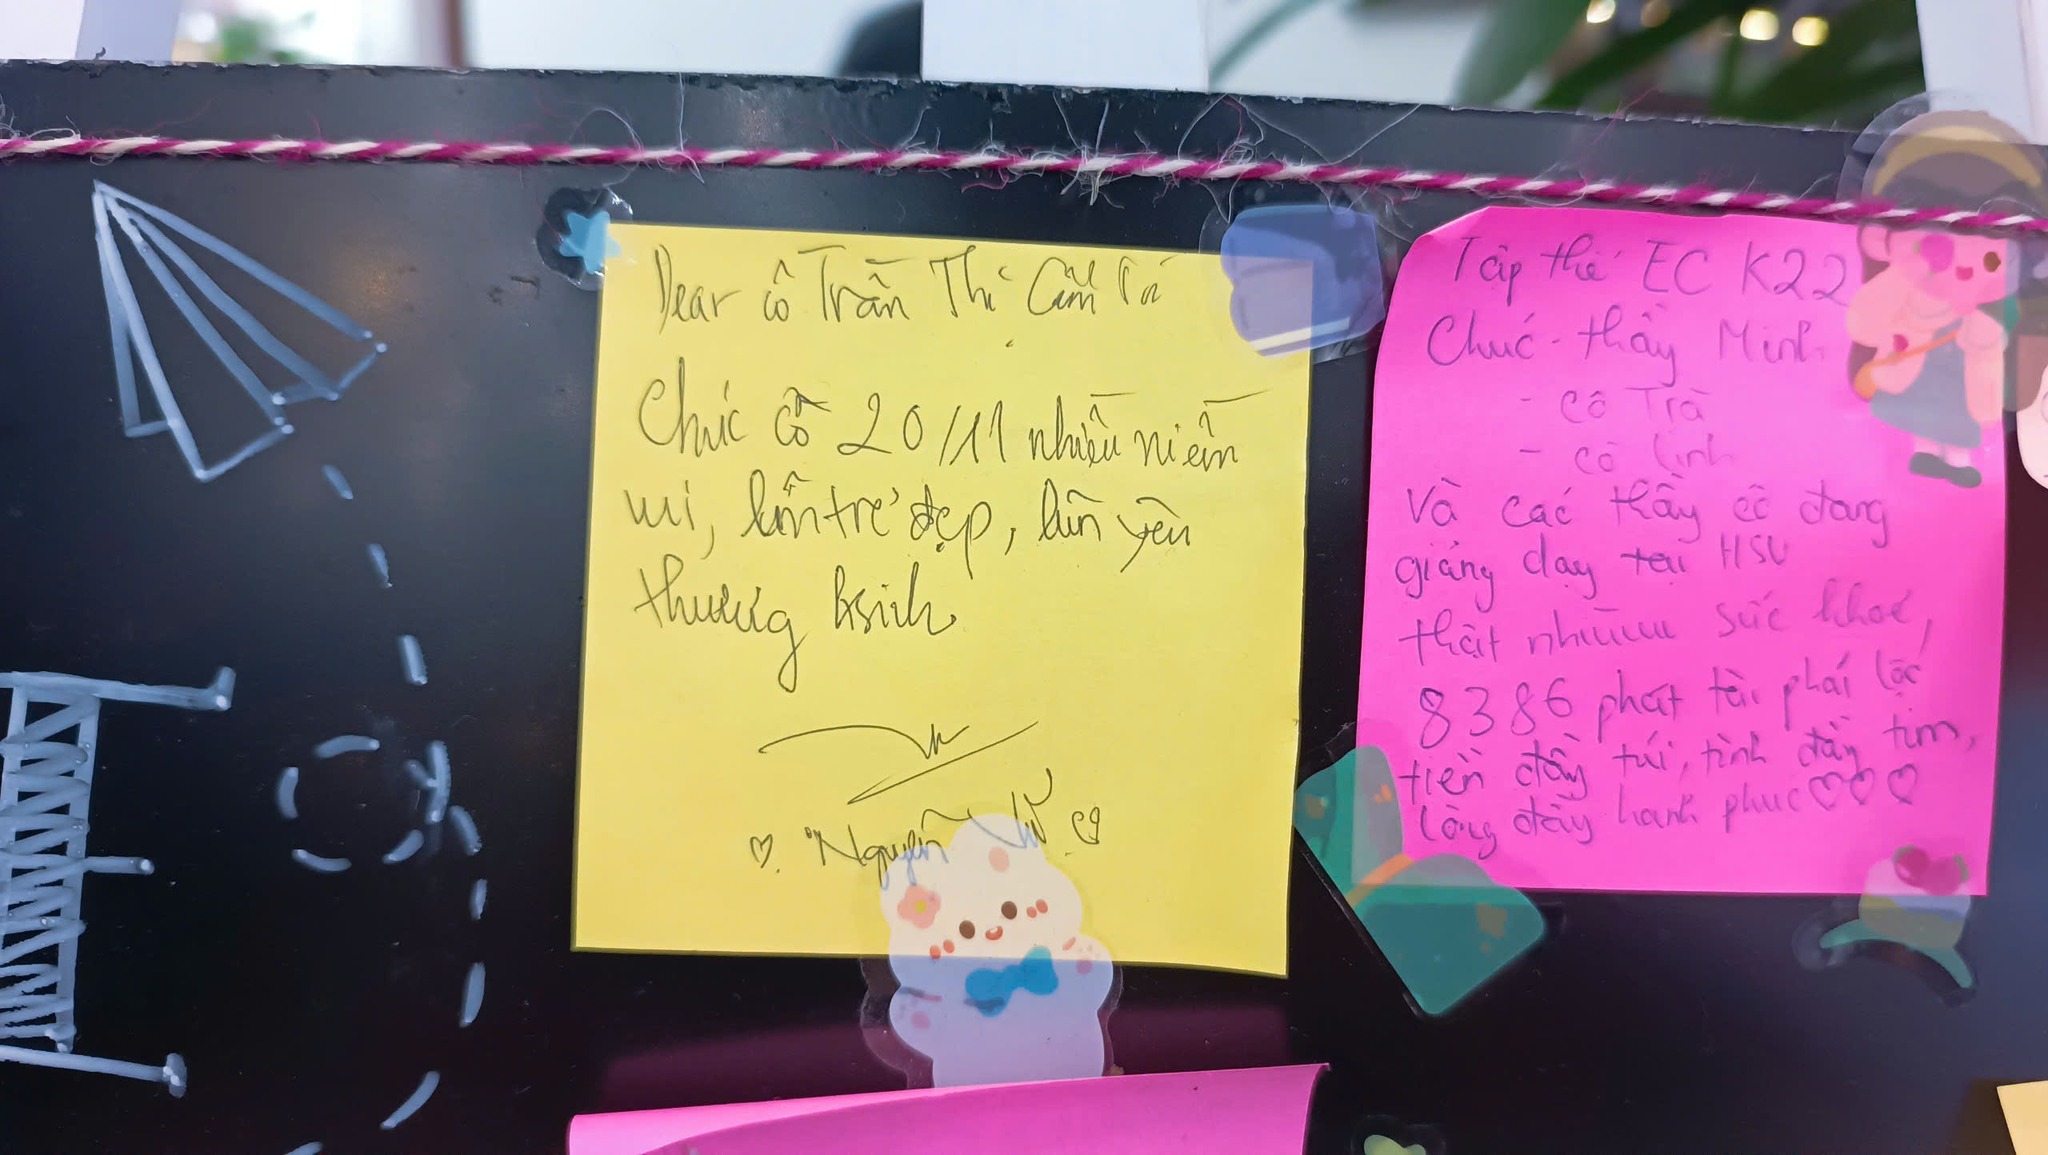 Dear cô Trần Thị Cẩm Tú
Chúc cô 20/11 nhiều niềm
vui, luôn trẻ đẹp, luôn yêu
thương hsinh
Nguyễn
Tập thể EC K22
Chúc - thầy Minh
- cô Trà
- cô Linh
Và các thầy cô đang
giảng dạy tại HSU
thật nhiều sức khoẻ,
8386 phát tài phát lộc
tiền đầy túi, tình đầy tim,
lòng đầy hạnh phúc ♡♡♡